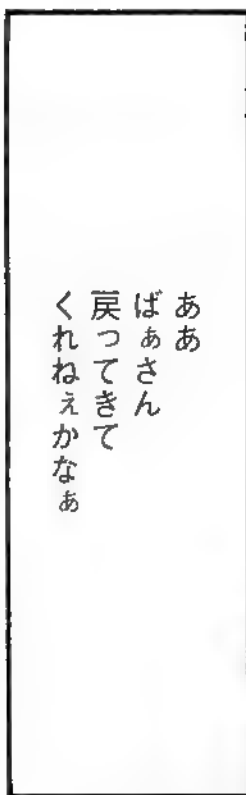 ああ
ばぁさん
戻ってきて
くれねぇかなぁ